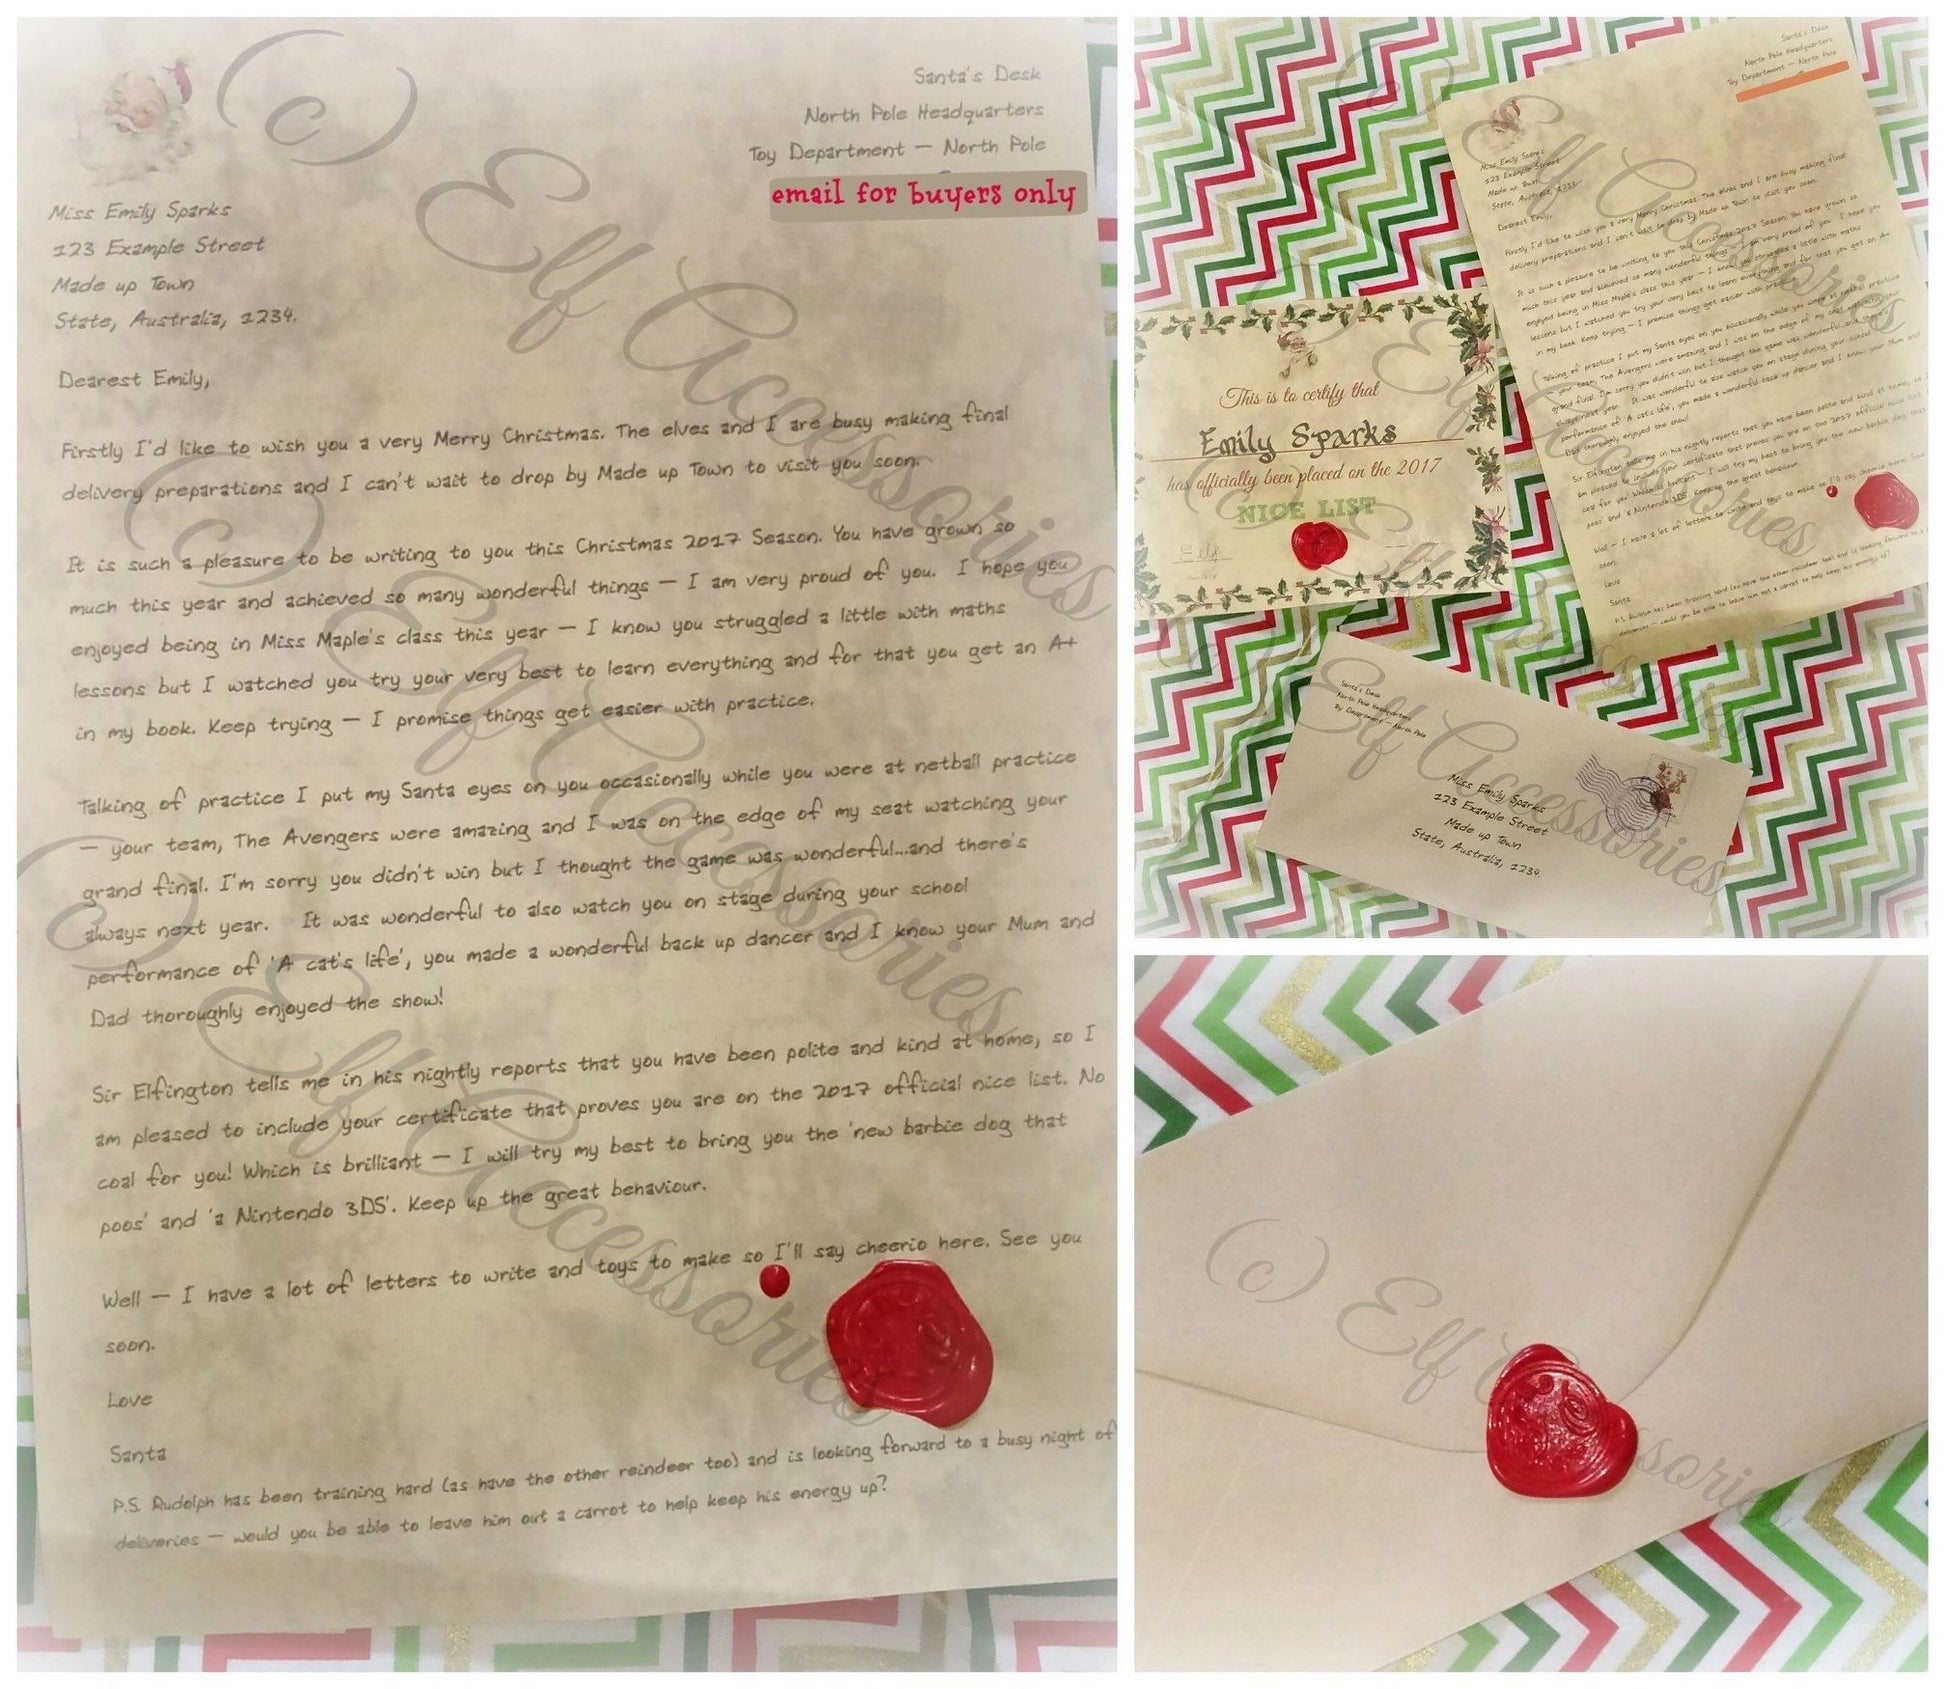 Santa's Desk
North Pole Headquarters
Toy Department — North Pole
email for buyers only
Miss Emily Sparks
123 Example Street
Made up Town
State, Australia, 1234.
Dearest Emily,
Firstly I'd like to wish you a very Merry Christmas. The elves and I are busy making final
delivery preparations and I can't wait to drop by Made up Town to visit you soon.
It is such a pleasure to be writing to you this Christmas 2017 Season. You have grown so
much this year and achieved so many wonderful things — I am very proud of you. I hope you
enjoyed being in Miss Maple's class this year — I know you struggled a little with maths
lessons but I watched you try your very best to learn everything and for that you get an A+
in my book. Keep trying — I promise things get easier with practice.
Talking of practice I put my Santa eyes on you occasionally while you were at netball practice
— your team, The Avengers were amazing and I was on the edge of my seat watching your
grand final. I'm sorry you didn't win but I thought the game was wonderful...and there's
always next year. It was wonderful to also watch you on stage during your school
performance of 'A cat's life', you made a wonderful back up dancer and I know your Mum and
Dad thoroughly enjoyed the show!
Sir Elfington tells me in his nightly reports that you have been polite and kind at home, so I
am pleased to include your certificate that proves you are on the 2017 official nice list. No
coal for you! Which is brilliant — I will try my best to bring you the 'new barbie dog that
poos' and 'a Nintendo 3DS'. Keep up the great behaviour.
Well — I have a lot of letters to write and toys to make so I'll say cheerio here. See you
soon.
Love
Santa
P.S. Rudolph has been training hard (as have the other reindeer too) and is looking forward to a busy night of
deliveries — would you be able to leave him out a carrot to help keep his energy up?
(c) Elf Accessories
(c) Elf Accessories
(c) Elf Accessories
Santa's Desk
North Pole Headquarters
Toy Department — North Pole
Miss Emily Sparks
123 Example Street
Made up Town
State, Australia, 1234.
Dearest Emily,
Firstly I'd like to wish you a very Merry Christmas. The elves and I are busy making final
delivery preparations and I can't wait to drop by Made up Town to visit you soon.
This is to certify that
Emily Sparks
has officially been placed on the 2017
NICE LIST
Santa's Desk
North Pole Headquarters
Toy Department — North Pole
Miss Emily Sparks
123 Example Street
Made up Town
State, Australia, 1234.
(c) Elf Accessories
(c) Elf Accessories
(c) Elf Accessories
(c) Elf Accessories